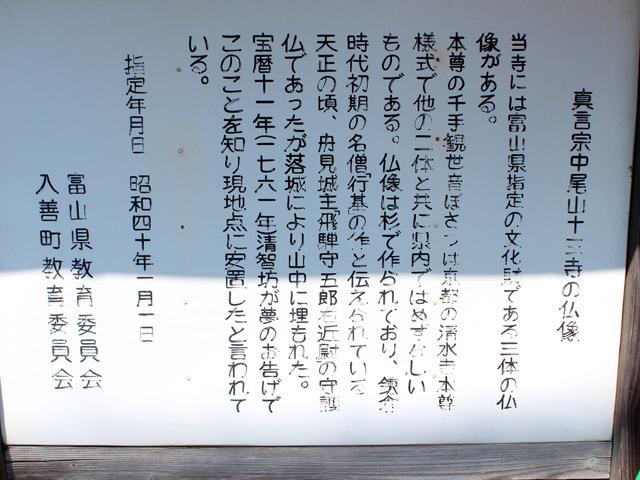 真言宗中尾山十三寺の仏像
当寺には富山県指定の文化財である三体の仏
像がある。
本尊の千手観世音ぼさつは京都の清水寺本尊
様式で他の二体と共に県内ではめずらしい
ものである。仏像は杉で作られており、鎌倉
時代初期の名僧「行基の作」と伝えられている。
天正の頃、舟見城主「飛騨守五郎左近尉」の守護
仏であったが落城により山中に埋もれた。
宝暦十一年(一七六一年)清智坊が夢のお告げで
このことを知り現地点に安置したと言われて
いる。
指定年月日 昭和四十年一月一日
富山県教育委員会
入善町教育委員会